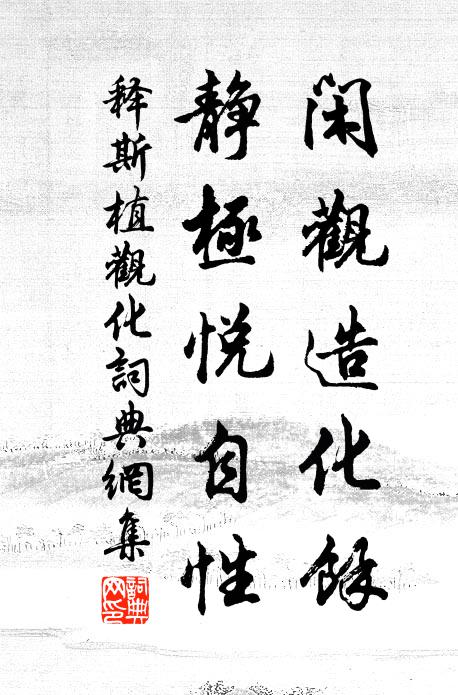 闲觀造化餘
静極悦自性
释斯植觀化詞典網集
詞典网印